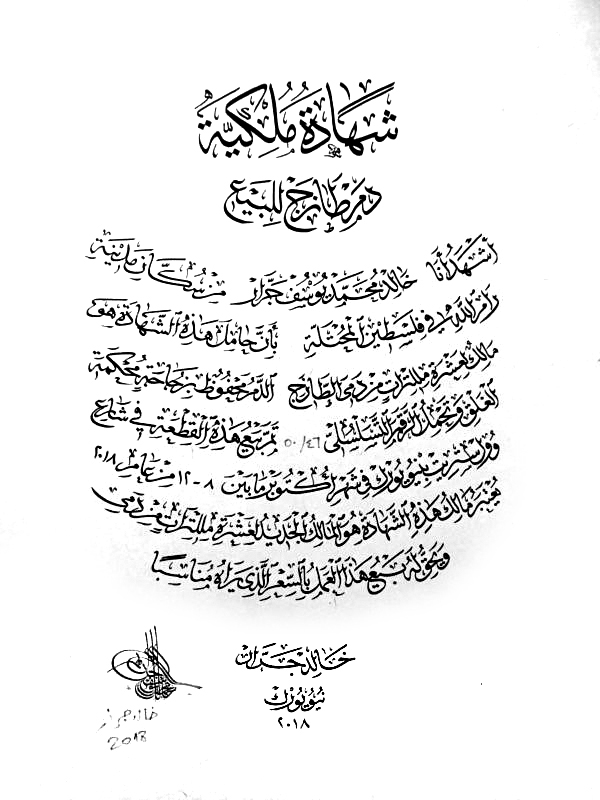 شَهَادَةُ مُلْكِيَّة
دم طازج للبيع
أشهد أنا خالد محمد يوسف جرار من سكان مدينة
رام الله في فلسطين المحتلة بأن حامل هذه الشهادة هو
مالك لعشرة مللترات من دمي الطازج الدم محفوظ بزجاجة محكمة
الغلق وتحمل الرقم التسلسلي ٥٠/٤٦ تم بيع هذه القطعة في شارع
وول ستريت بنيويورك في شهر أكتوبر ما بين ٨-١٢ من عام ٢٠١٨
يعتبر مالك هذه الشهادة هو المالك الجديد لعشرة مللترات من دمي
ويحق له بيع هذا العمل بالسعر الذي يراه مناسبًا
خالد جرار
نيويورك
٢٠١٨
خالد جرار
2018